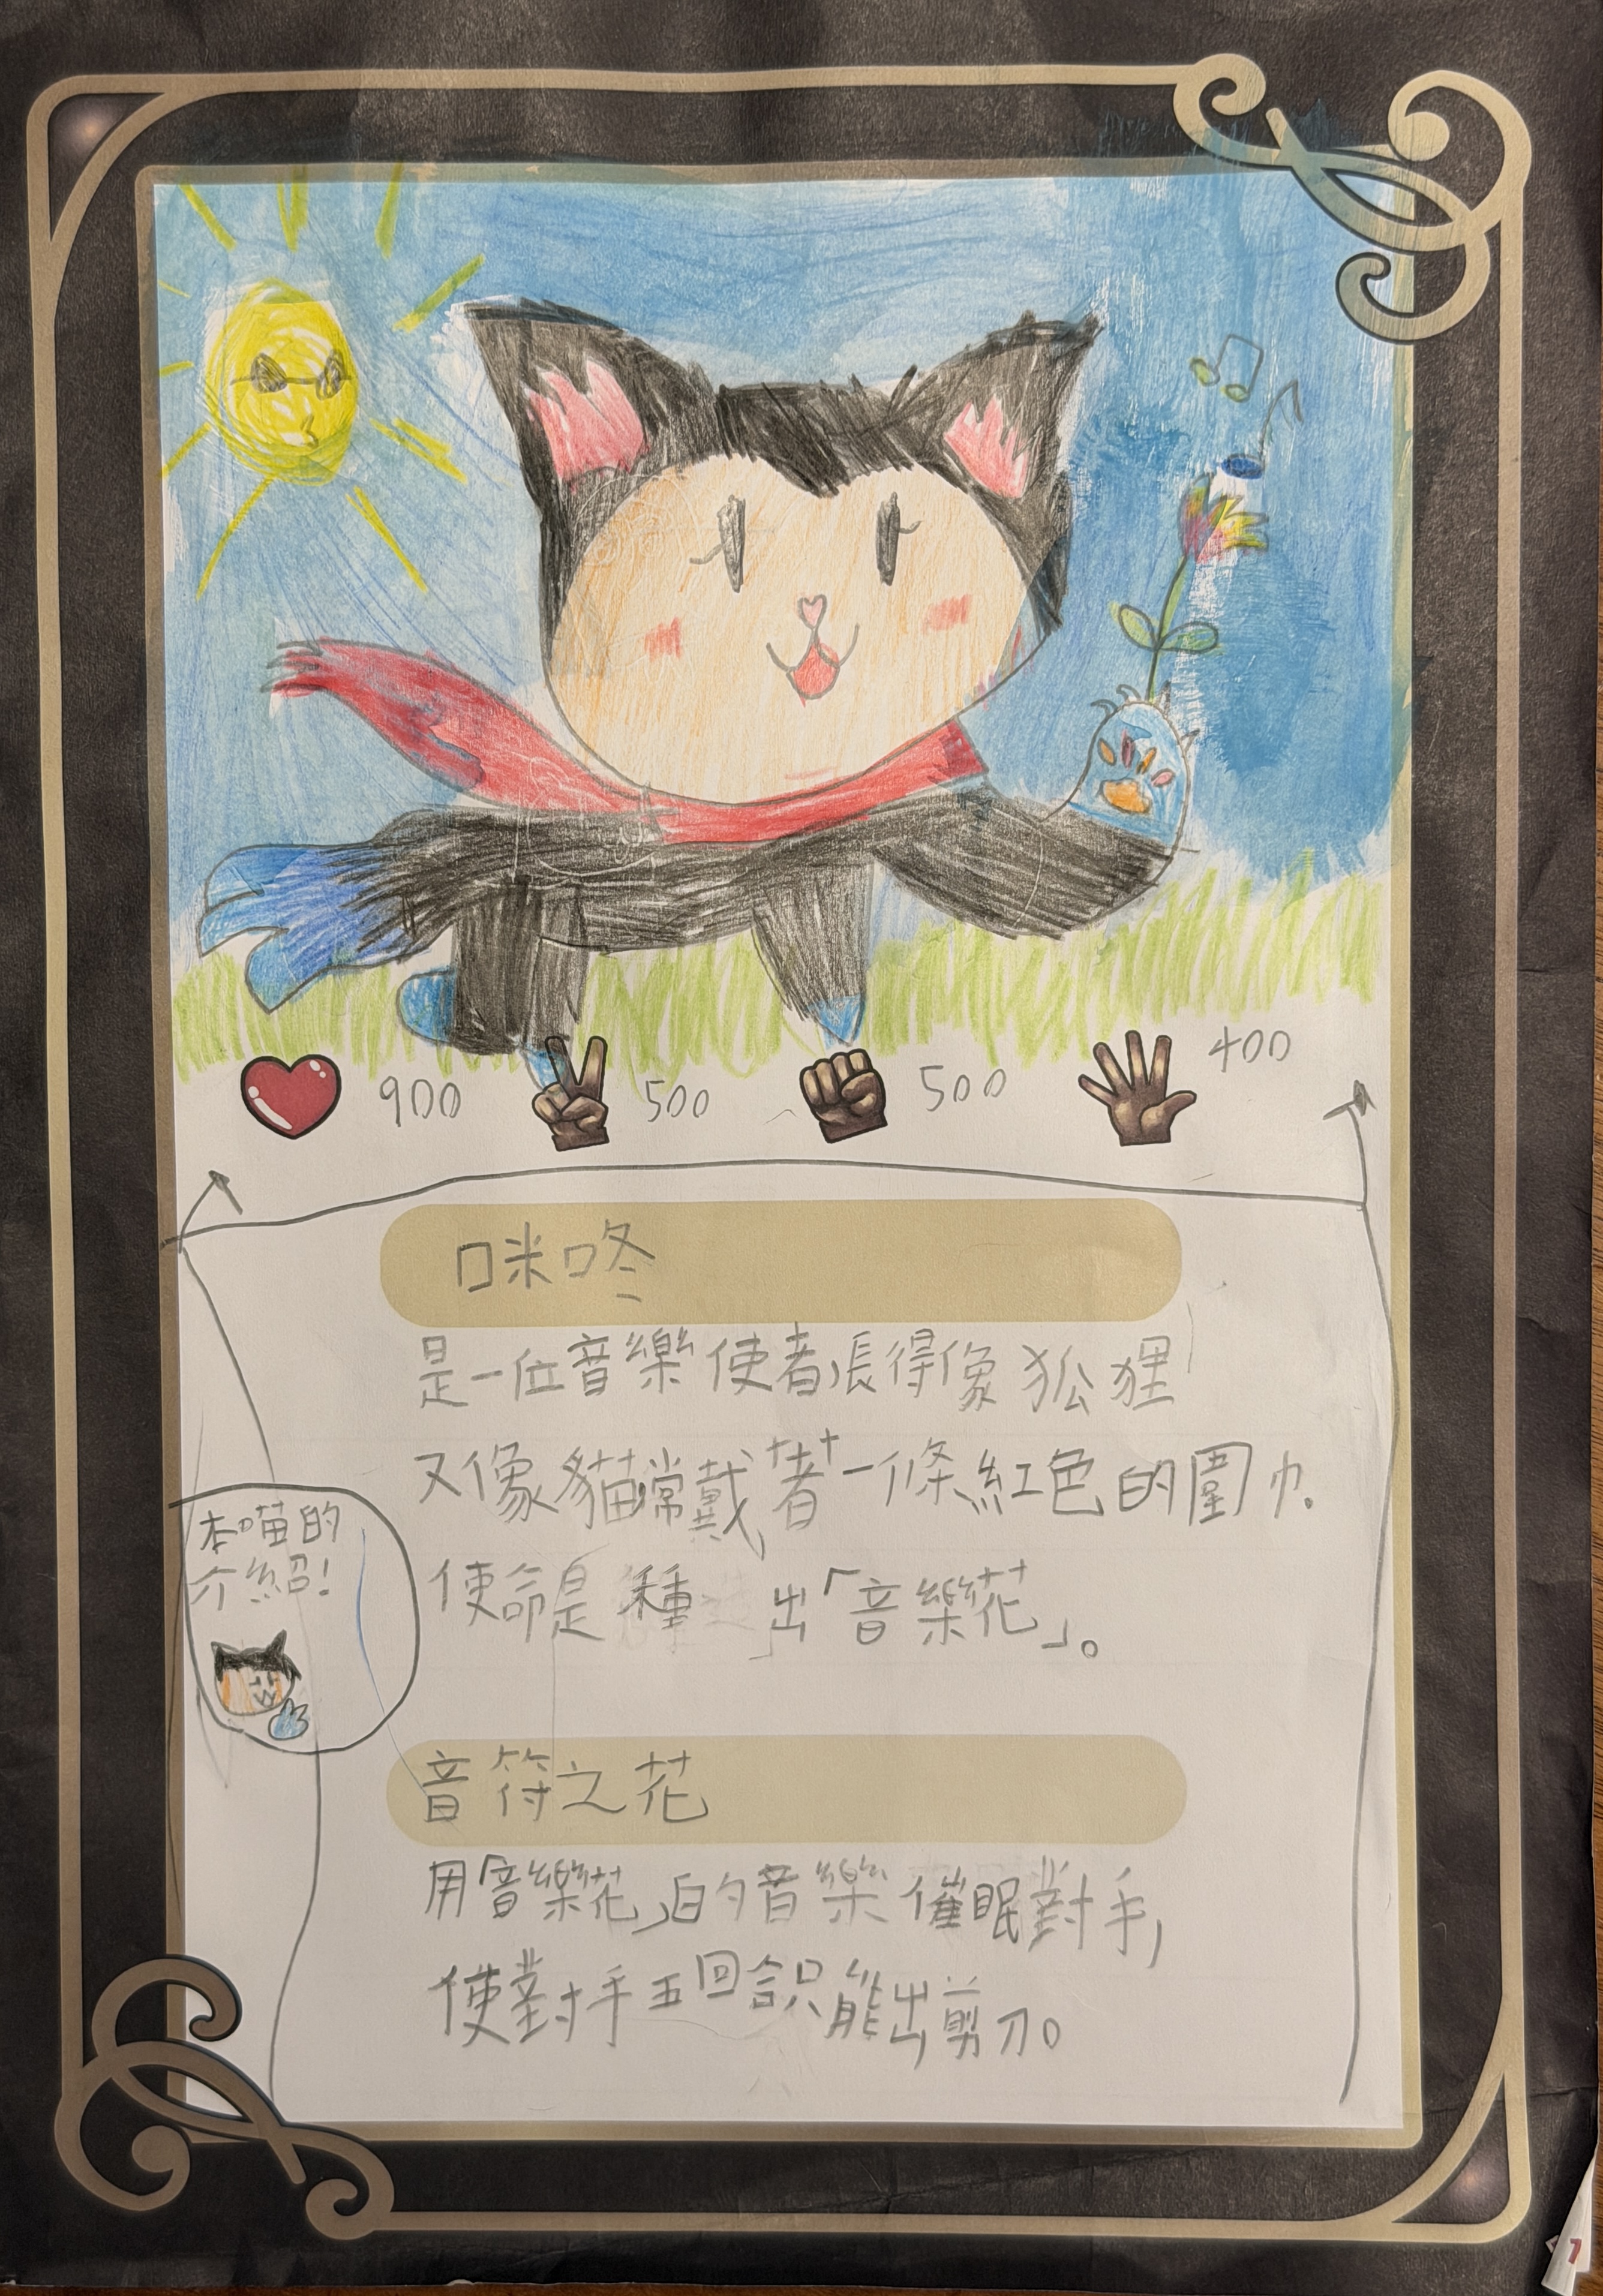 900
500
500
400
咪咚
是一位音樂使者,長得像狐狸
又像貓,常戴著一條紅色的圍巾。
使命是種出「音樂花」。
本喵的
介紹!
音符之花
用「音樂花」的音樂催眠對手,
使對手五回合只能出剪刀。
7